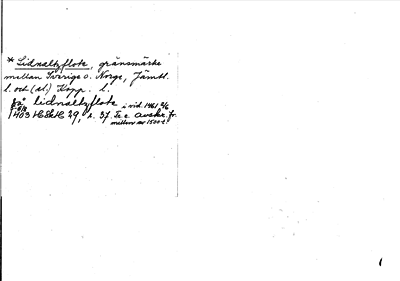 * Lidnaltzflote, gränsmärke
mellan Sverige o. Norge, Jämtl.
l. och (st) Kopp. l.
på lidnaltzflote i vid. 1461 2/6
1403 HSH 29, s. 37. Sv. avskr. fr.
mitten av 1500-t.